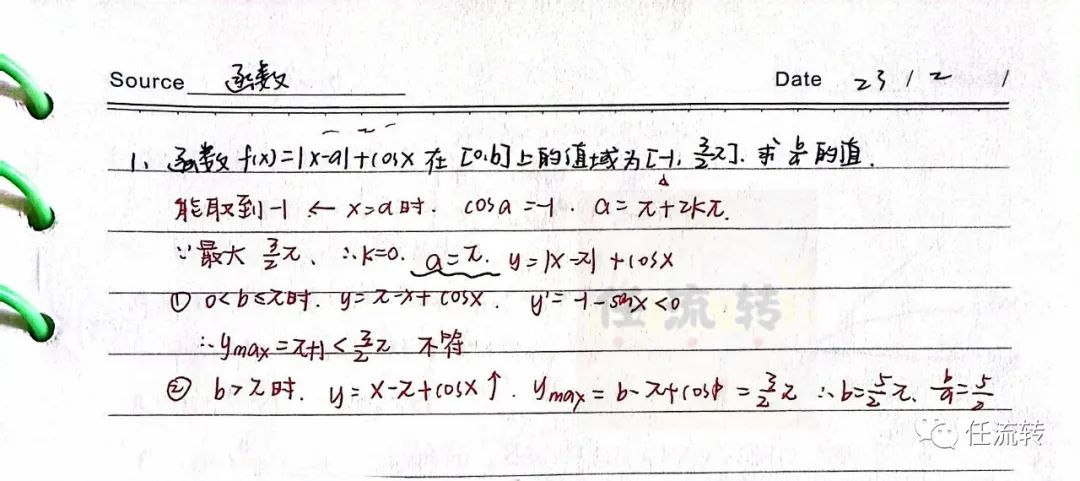 Source 函数 Date 23 / 2 /
1. 函数 f(x)=|x-a|+cosx 在 [0,b] 上的值域为 [-1, 3/2π]. 求 b/a 的值.
能取到-1 ← x=a时. cosa=-1. a=π+2kπ.
∵最大 3/2π、∴k=0. a=π. y=|x-π|+cosx
① 0<b≤π时. y=π-x+cosx. y'=-1-sinx<0
任流转
∴ymax=π+1<3/2π 不符
② b>π时. y=x-π+cosx↑. ymax=b-π+cosb=3/2π ∴b=5/2π. b/a=5/2
任流转